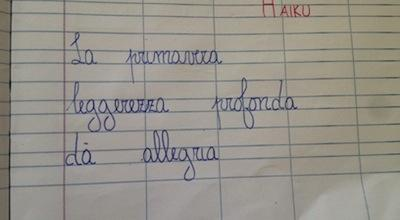 HAIKU
La primavera
leggerezza profonda
dà allegria